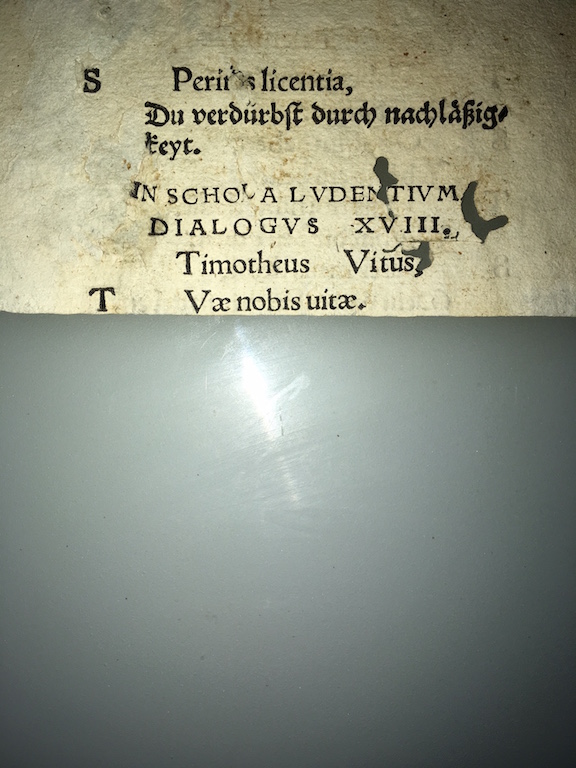 S Peris licentia,
Du verdürbſt durch nachlåßig⸗
keyt.
IN SCHOLA LVDENTIVM
DIALOGVS XVIII.
Timotheus Vitus,
T Væ nobis uitæ.